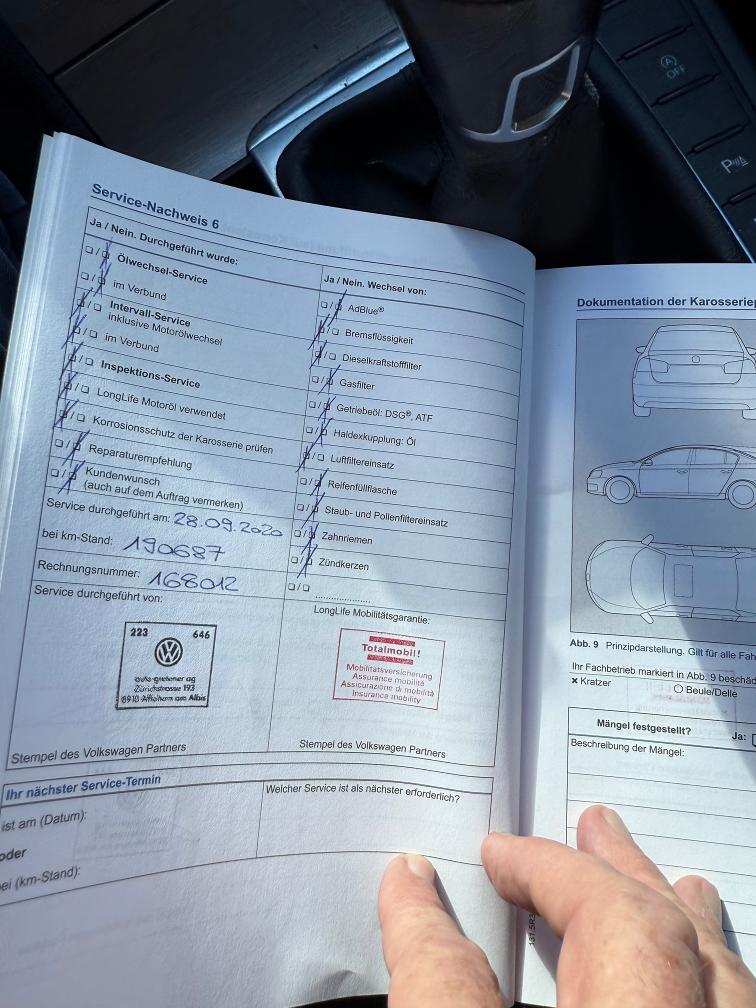 Service-Nachweis 6
Ja / Nein. Durchgeführt wurde:
Ölwechsel-Service
im Verbund
Intervall-Service
inklusive Motorölwechsel
im Verbund
Inspektions-Service
LongLife Motoröl verwendet
Korrosionsschutz der Karosserie prüfen
Reparaturempfehlung
Kundenwunsch
(auch auf dem Auftrag vermerken)
Service durchgeführt am: 28.09.2020
bei km-Stand: 190687
Rechnungsnummer: 168012
Service durchgeführt von:
223 646
Zürichstrasse 193
8910 Affoltern am Albis
Stempel des Volkswagen Partners
Ja / Nein. Wechsel von:
AdBlue®
Bremsflüssigkeit
Dieselkraftstofffilter
Gasfilter
Getriebeöl: DSG®, ATF
Haldexkupplung: Öl
Luftfiltereinsatz
Reifenfüllflasche
Staub- und Pollenfiltereinsatz
Zahnriemen
Zündkerzen
LongLife Mobilitätsgarantie:
Totalmobil!
Mobilitätsversicherung
Assurance mobilité
Assicurazione di mobilità
Insurance mobility
Stempel des Volkswagen Partners
Ihr nächster Service-Termin
ist am (Datum):
oder
bei (km-Stand):
Welcher Service ist als nächster erforderlich?
Dokumentation der Karosserie
Abb. 9 Prinzipdarstellung. Gilt für alle Fah
Ihr Fachbetrieb markiert in Abb. 9 beschäd
× Kratzer
Beule/Delle
Mängel festgestellt? Ja:
Beschreibung der Mängel:
A OFF
P